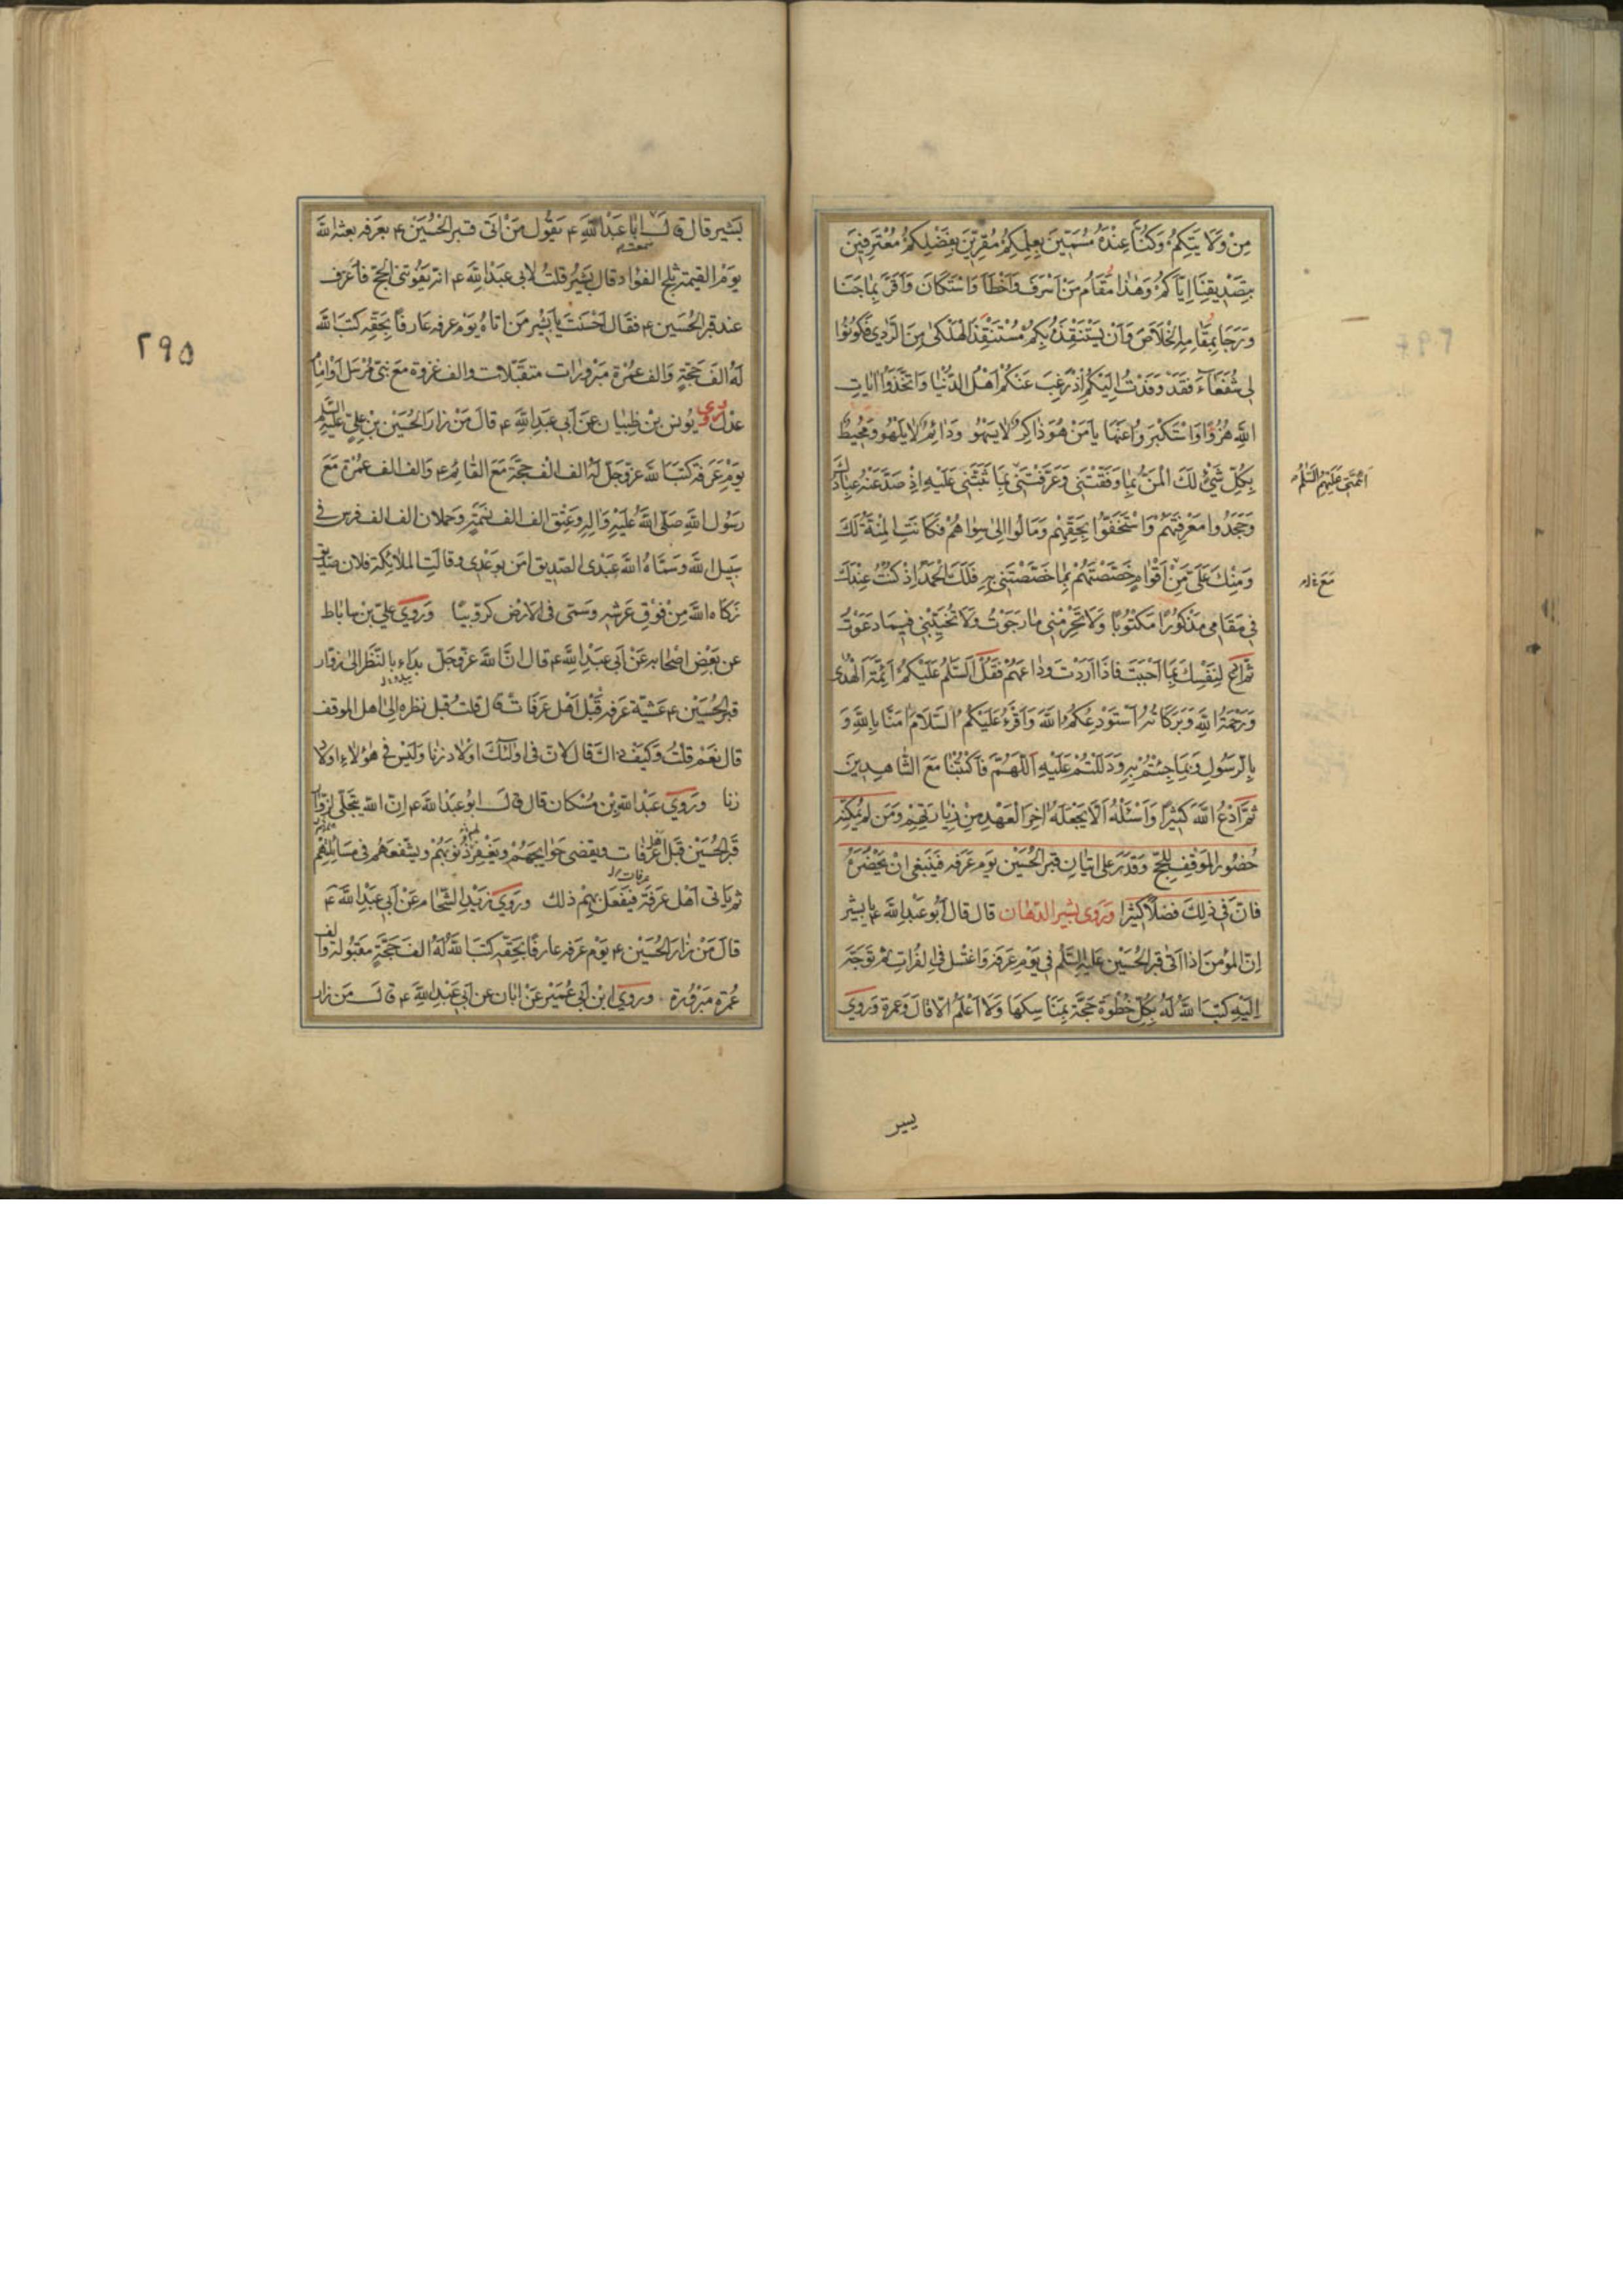 مِنْ وَلَايَتِكُمْ وَكُنَّا عِنْدَهُ مُسَمَّيْنَ بِعِلْمِكُمْ مُقِرِّينَ بِفَضْلِكُمْ مُعْتَرِفِينَ
بِتَصْدِيقِنَا اِيَّاكُمْ وَهٰذَا مَقَامُ مَنْ اَسْرَفَ وَاَخْطَاَ وَاسْتَكَانَ وَاَقَرَّ بِمَا جَنَا
وَرَجَا بِمَقَامِهِ الْخَلَاصَ وَاَنْ يَسْتَنْقِذَهُ بِكُمْ مُسْتَنْقِذُ الْهَلْكٰى مِنَ الرَّدٰى فَكُونُوا
لِى شُفَعَاءَ فَقَدْ وَفَدْتُ اِلَيْكُمْ اِذْ رَغِبَ عَنْكُمْ اَهْلُ الدُّنْيَا وَاتَّخَذُوا اٰيَاتِ
اللهِ هُزُوًا وَاسْتَكْبَرُوا عَنْهَا يَا مَنْ هُوَ ذَاكِرٌ لَا يَسْهُو وَدَائِمٌ لَا يَلْهُو وَمُحِيطٌ
بِكُلِّ شَيْءٍ لَكَ الْمَنُّ بِمَا وَفَّقْتَنِى وَعَرَّفْتَنِى بِمَا ثَبَّتَّنِى عَلَيْهِ اِذْ صَدَّ عَنْهُ عِبَادُكَ
اَئِمَّتِى عَلَيْهِمُ السَّلٰمُ
وَجَحَدُوا مَعْرِفَتَهُمْ وَاسْتَخَفُّوا بِحَقِّهِمْ وَمَالُوا اِلٰى سِوَاهُمْ فَكَانَتِ الْمِنَّةُ لَكَ
وَمِنْكَ عَلَىَّ مِنْ اَقْوَامٍ خَصَصْتَهُمْ بِمَا خَصَصْتَنِى بِهِ فَلَكَ الْحَمْدُ اِذْ كُنْتُ عِنْدَكَ
مَعَ
فِى مَقَامِى مَذْكُورًا مَكْتُوبًا وَلَا تَحْرِمْنِى مَا رَجَوْتُ وَلَا تُخَيِّبْنِى فِيمَا دَعَوْتُ
ثُمَّ ادْعُ لِنَفْسِكَ بِمَا اَحْبَبْتَ فَاِذَا اَرَدْتَ وَدَاعَهُمْ فَقُلْ اَلسَّلٰمُ عَلَيْكُمْ اَئِمَّةَ الْهُدٰى
وَرَحْمَةُ اللهِ وَبَرَكَاتُهُ اَسْتَوْدِعُكُمُ اللهَ وَاَقْرَءُ عَلَيْكُمُ السَّلَامَ اٰمَنَّا بِاللهِ وَ
بِالرَّسُولِ وَبِمَا جِئْتُمْ بِهِ وَدَلَلْتُمْ عَلَيْهِ اَللّٰهُمَّ فَاكْتُبْنَا مَعَ الشَّاهِدِينَ
ثُمَّ ادْعُ اللهَ كَثِيرًا وَاسْئَلْهُ اَلَّا يَجْعَلَهُ اٰخِرَ الْعَهْدِ مِنْ زِيَارَتِهِمْ وَمَنْ لَمْ يُمْكِنْهُ
حُضُورُ الْمَوْقِفِ لِلْحَجِّ وَقَدَرَ عَلٰى اِتْيَانِ قَبْرِ الْحُسَيْنِ يَوْمَ عَرَفَه فَيَنْبَغِى اَنْ يَحْضُرَهُ
فَاِنَّ فِى ذٰلِكَ فَضْلًا كَثِيرًا وَرَوٰى بشير الدهان قَالَ قَالَ اَبُو عَبْدِ اللهِ ع يَا بشير
اِنَّ الْمُؤْمِنَ اِذَا اَتٰى قَبْرَ الْحُسَيْنِ عَلَيْهِ السَّلٰمُ فِى يَوْمِ عَرَفَه وَاغْتَسَلَ فِى الْفُرَاتِ ثُمَّ تَوَجَّهَ
اِلَيْهِ كَتَبَ اللهُ لَهُ بِكُلِّ خُطْوَةٍ حَجَّةً بِمَنَاسِكِهَا وَلَا اَعْلَمُ اِلَّا قَالَ وَعُمْرَةً وَرَوٰى
بَشير قال قَالَ سمعت اَبَا عَبْدِ اللهِ ع يَقُولُ مَنْ اَتٰى قبر الْحُسَيْنِ ع بعَرَفه بعثه الله
يَوْمَ القيٰمة ثلج الفؤاد قال بَشِيرُ قلتُ لابى عَبْدِ اللهِ ع انه يَفُوتنى الحَجّ فاعرف
عند قبر الْحُسَيْنِ ع فقال اَحْسَنْتَ يا بَشِير مَن اتاهُ يَوْم عرفه عَارفًا بِحَقِّهِ كتبَ الله
۲۹۵
لَهُ الف حَجّةٍ وَالف عمْرَة مَبْرورات متقبَّلات والف غزوة مَعَ نبىّ مُرْسَل اَوْ امام
عدل روى يُونس بْن ظبيان عَنْ اَبِى عَبْدِ اللهِ ع قال مَنْ زار الْحُسَيْن بْن عَلِىّ عَلَيْهِ السَّلٰم
يَوْم عَرَفة كتبَ الله عزّوجلّ لَهُ الف الف حجَّة مَعَ القائِم ع وَالف الف عُمْرَة مَعَ
رَسُولِ اللهِ صَلَّى اللهُ عَلَيْهِ وَالِهِ وَعِتْق الف الف نَسَمَةٍ وَحملان الف الف فرس فى
سَبِيلِ الله وَسَمَّاهُ الله عَبْدى الصّديق اٰمَن بوَعْدى وقالَتِ الملائِكة فلان صديق
زَكاهُ الله مِنْ فَوْقِ عَرشه وَسَمّى فى الارض كروبيًا وَرَوٰى علىّ بْن ساباط
عن بَعْضِ اصْحَابه عَنْ اَبِى عَبْدِ اللهِ ع قال انَّ الله عَزَّوجَلّ يبدء بالنّظر الٰى زوّار
قبر الحُسَيْن ع عَشيّة عَرفه قَبْل اَهْل عَرَفات قال قلتُ قبل نظره الى اهل الموقف
قال نَعَمْ قلتُ وَكَيْفَ ذاك قال لانّ فى اولئِكَ اوْلاد زنا وَلَيْسَ فى هٰؤلاءِ اولاد
زنا وَرَوٰى عَبْد الله بْن مُسْكان قال قَالَ ابو عَبْدِ الله ع اِنّ الله يتجلّى لزوّار
قَبر الحُسَيْن قَبل اهل عَرَفات ويقضى حَوايجهُمْ وَيَغْفر ذُنُوبَهُمْ ويشفعهُم فى مَسَائِلهِمْ
عرفات
ثم ياتى اَهْل عَرَفَة فيَفْعَل بِهِمْ ذلك وَرَوٰى زَيْد الشَّحَّام عَنْ اَبِى عَبْدِ اللهِ ع
قال مَنْ زارَ الحُسَيْن ع يَوْم عَرَفه عارفًا بحَقِّهِ كتَبَ اللهُ لَهُ الف حَجَّةٍ مَقْبُولة والف
عُمْرَة مَبْرُورَة وَرَوٰى ابْن اَبِى عُمَيْر عَنْ ابان عن اَبِى عَبْدِ اللهِ ع قَالَ مَن زار